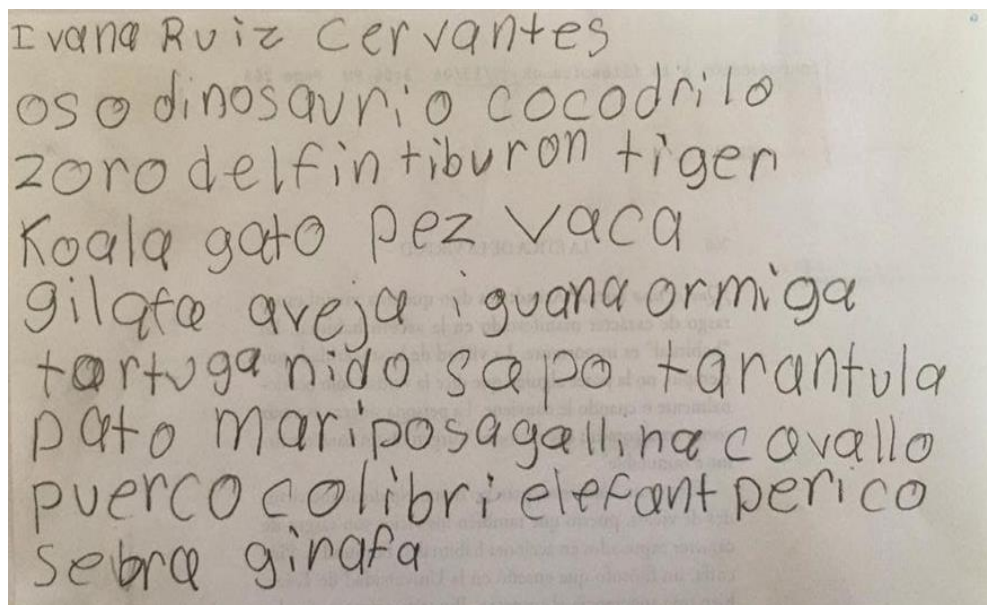 Ivana Ruiz Cervantes
oso dinosaurio cocodrilo
zoro delfin tiburon tiger
Koala gato pez vaca
gilafa aveja iguana ormiga
tortuga nido sapo tarantula
pato mariposa gallina cavallo
puerco colibri elefant perico
sebra girafa